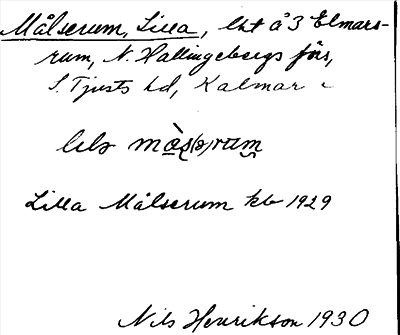 Målserum, Lilla, lht å 3 Elmars-
rum, N. Hallingebergs förs,
S. Tjusts hd, Kalmar l
Lilla Målserum kb 1929
Nils Henrikson 1930